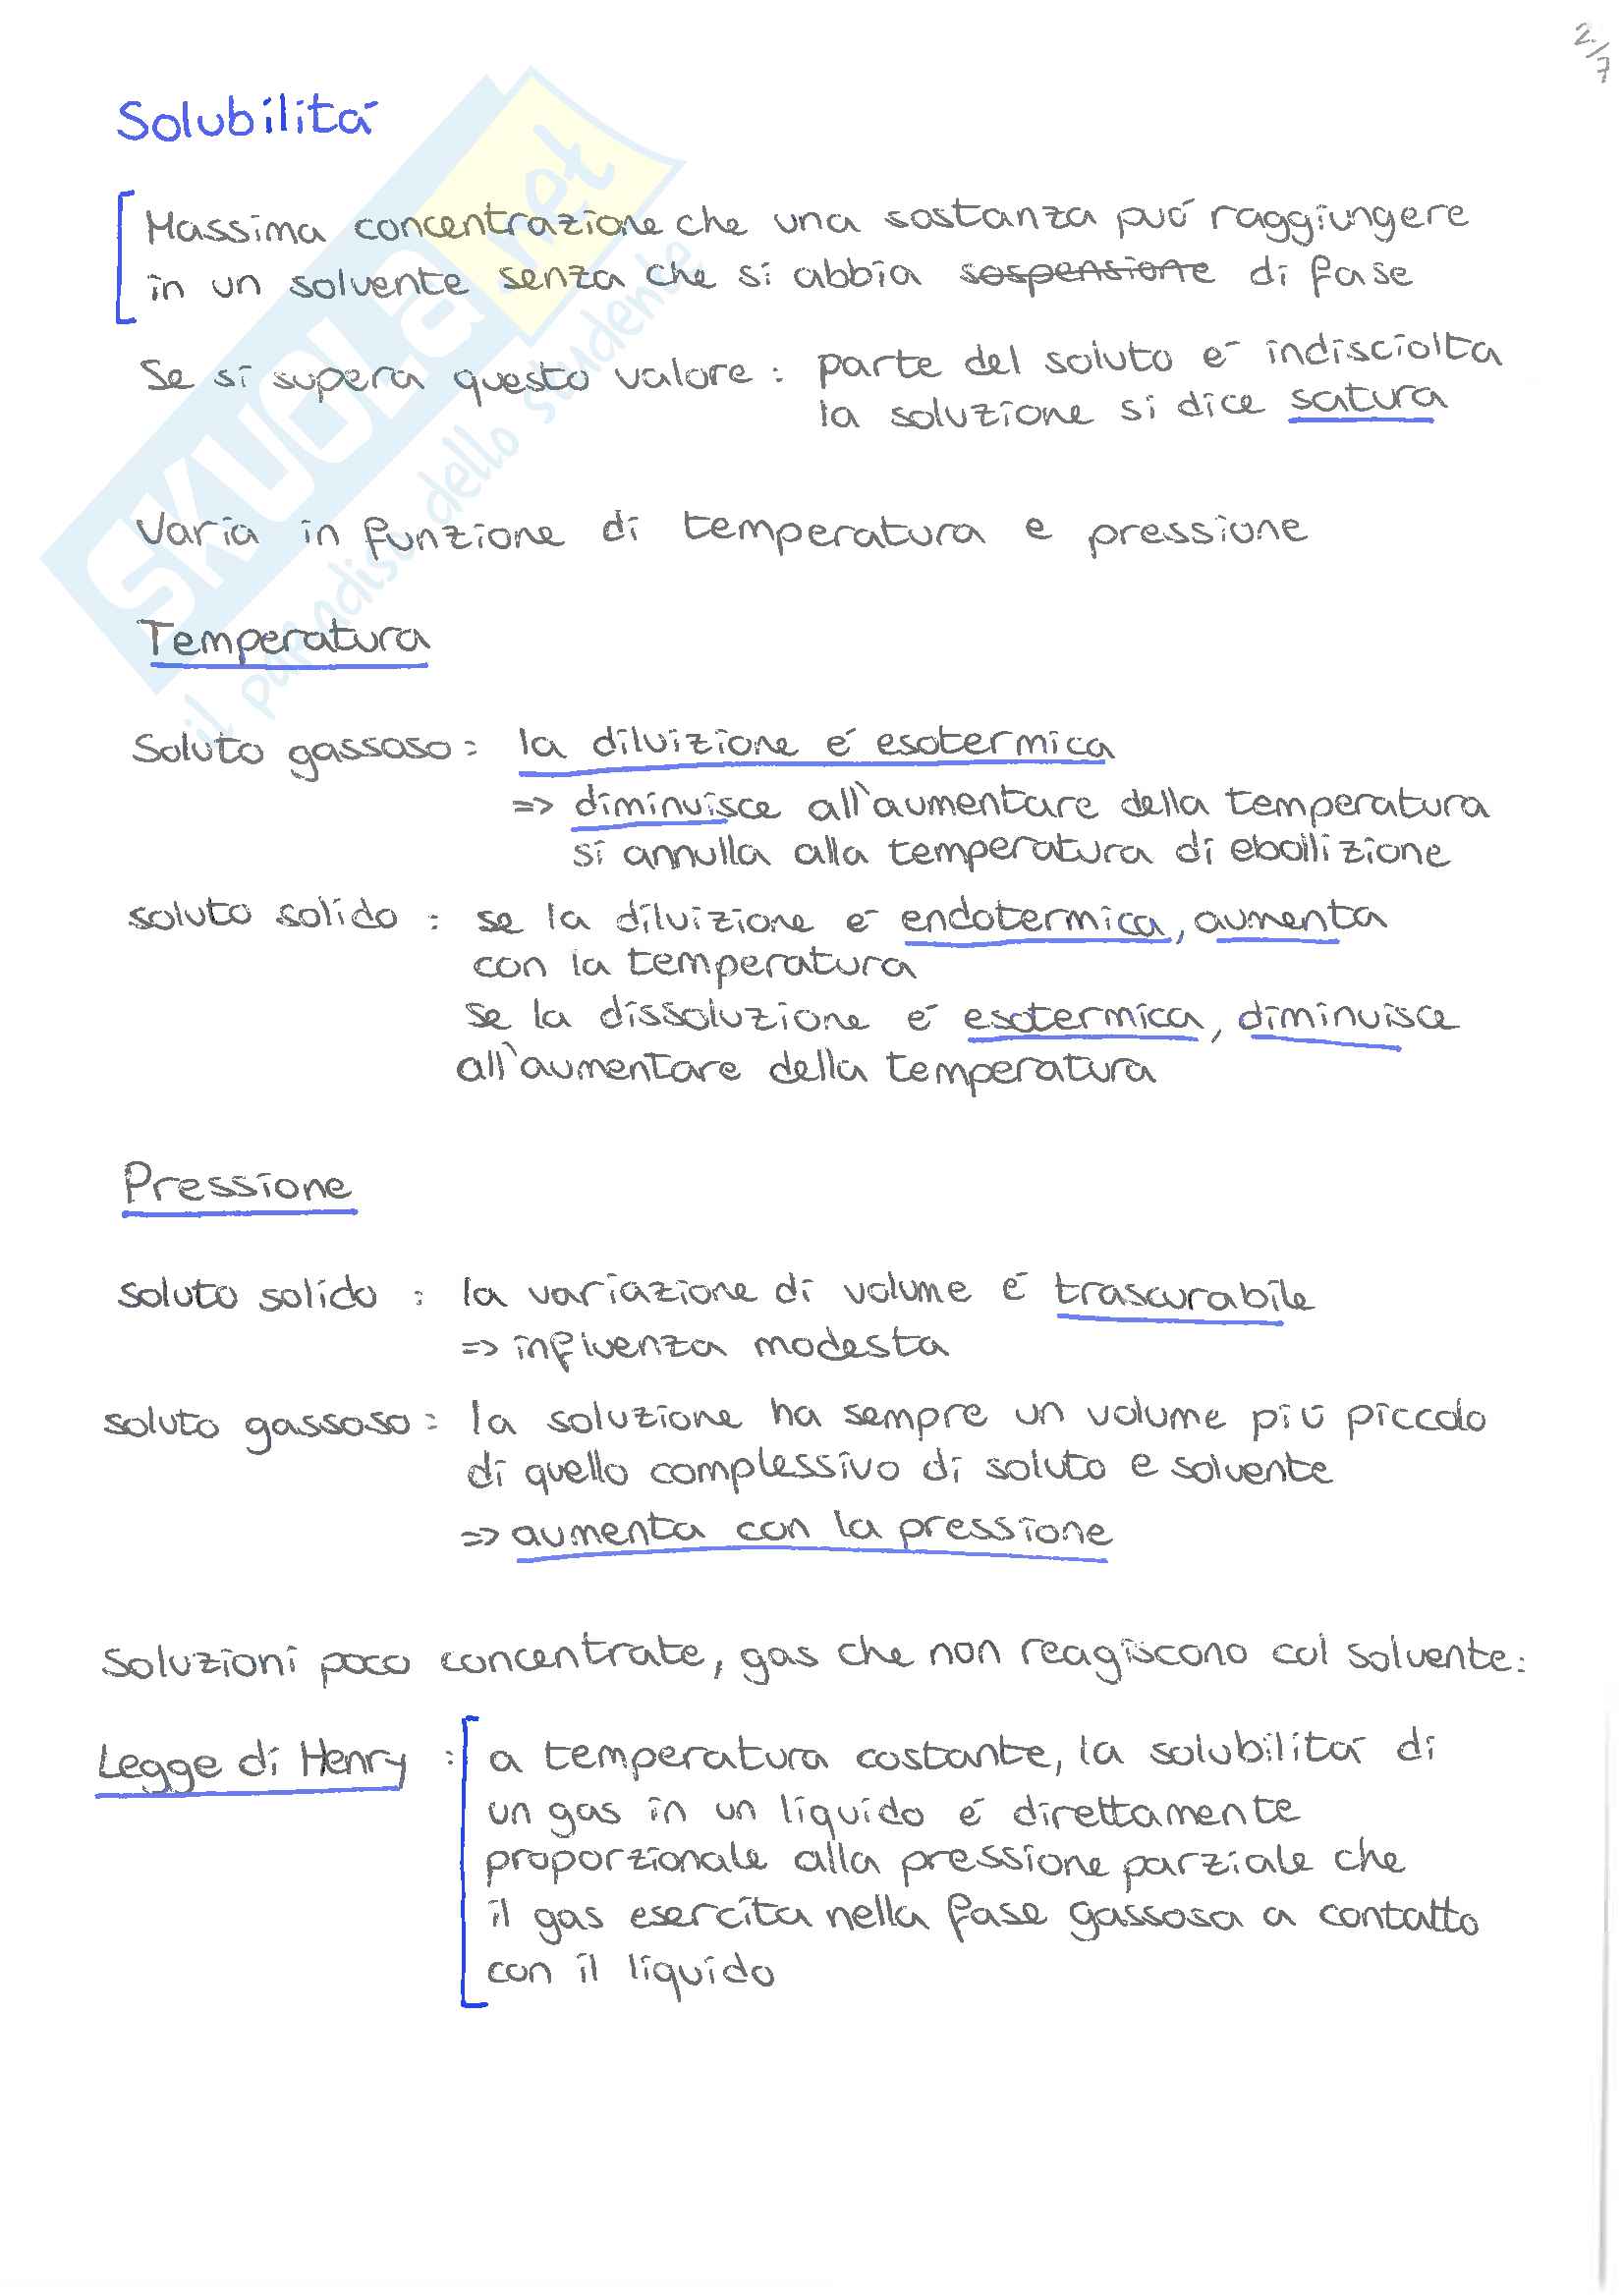 2/7
Solubilitá
Massima concentrazione che una sostanza puó raggiungere
in un solvente senza che si abbia sospensione di fase
Se si supera questo valore: parte del soluto é indisciolta
la soluzione si dice satura
Varia in funzione di temperatura e pressione
Temperatura
Soluto gassoso: la diluizione é esotermica
=> diminuisce all'aumentare della temperatura
si annulla alla temperatura di ebollizione
soluto solido: se la diluizione é endotermica, aumenta
con la temperatura
se la dissoluzione é esotermica, diminuisce
all'aumentare della temperatura
Pressione
soluto solido: la variazione di volume é trascurabile
=> influenza modesta
soluto gassoso: la soluzione ha sempre un volume piú piccolo
di quello complessivo di soluto e solvente
=> aumenta con la pressione
Soluzioni poco concentrate, gas che non reagiscono col solvente:
Legge di Henry: a temperatura costante, la solubilitá di
un gas in un liquido é direttamente
proporzionale alla pressione parziale che
il gas esercita nella fase gassosa a contatto
con il liquido
SKUOLA.net
il paradiso dello studente